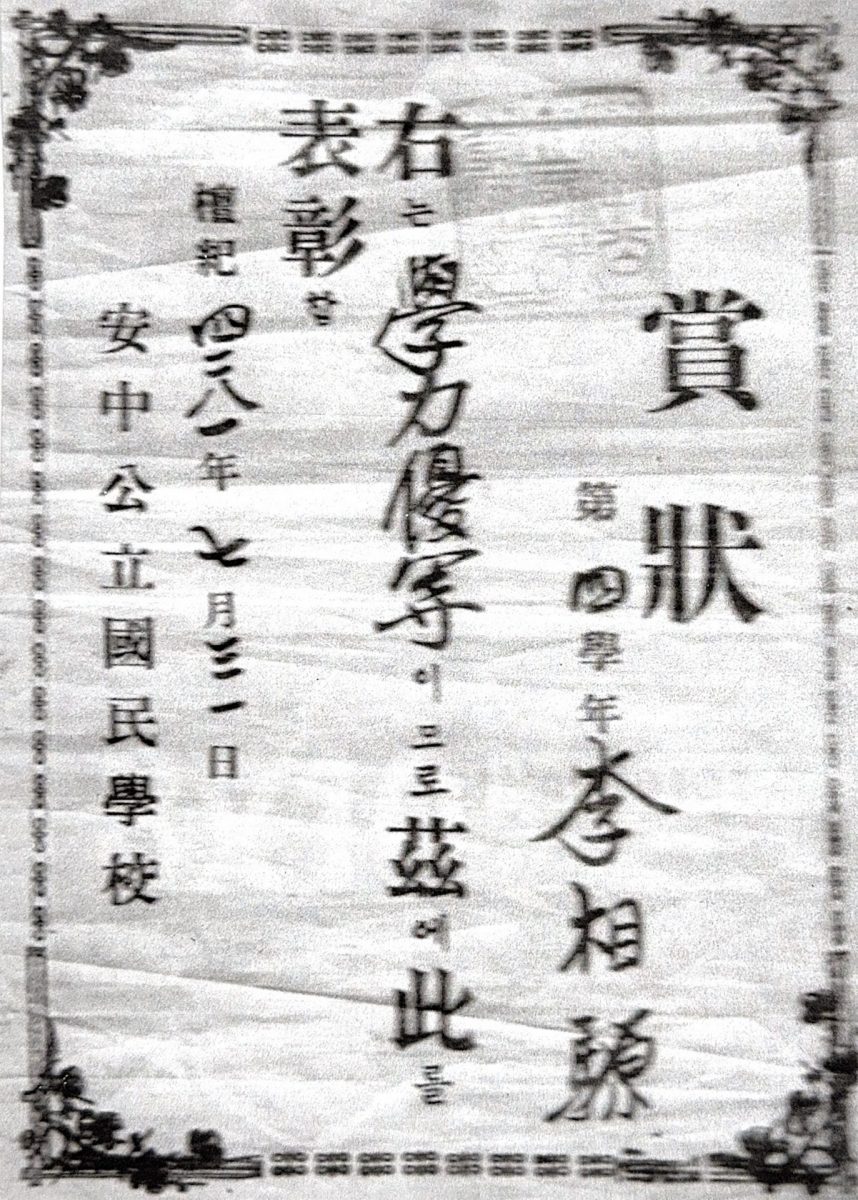 賞狀
第四學年 李相
右는 學力優等이므로 茲에 此를
表彰함
檀紀四二八一年七月三一日
安中公立國民學校